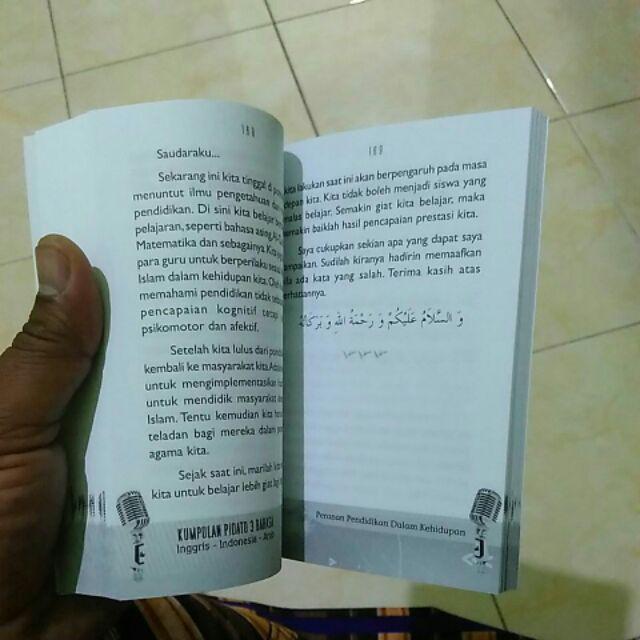 188
Saudaraku...
Sekarang ini kita tinggal di
menuntut ilmu pengetahuan
pendidikan. Di sini kita belajar
pelajaran, seperti bahasa asing,
Matematika dan sebagainya. Kita
para guru untuk berperilaku
Islam dalam kehidupan kita.
memahami pendidikan tidak
pencapaian kognitif tetapi
psikomotor dan afektif.
Setelah kita lulus dari
kembali ke masyarakat kita.
untuk mengimplementasikan
untuk mendidik masyarakat
Islam. Tentu kemudian kita
teladan bagi mereka dalam
agama kita.
Sejak saat ini, marilah
kita untuk belajar lebih giat
KUMPULAN PIDATO 3 BAHASA
Inggris - Indonesia - Arab
189
kita lakukan saat ini akan berpengaruh pada masa
depan kita. Kita tidak boleh menjadi siswa yang
malas belajar. Semakin giat kita belajar, maka
semakin baiklah hasil pencapaian prestasi kita.
Saya cukupkan sekian apa yang dapat saya
sampaikan. Sudilah kiranya hadirin memaafkan
ada kata yang salah. Terima kasih atas
perhatiannya.
وَ السَّلَامُ عَلَيْكُمْ وَ رَحْمَةُ اللهِ وَ بَرَكَاتُهُ
Peranan Pendidikan Dalam Kehidupan